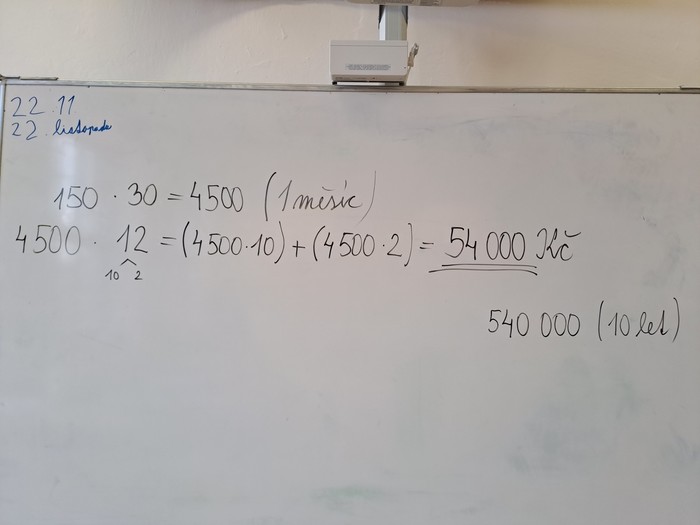 22.11
22. listopadu
150 · 30 = 4500 (1 měsíc)
4500 · 12 = (4500·10) + (4500·2) = 54 000 Kč
10 2
540 000 (10 let)